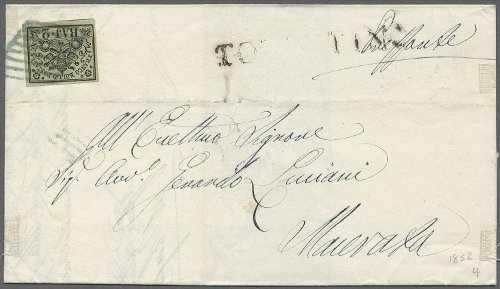 BAJ 2
FRANCO BOLLO POSTALE
TOLENTINO
All'Eccellmo Signore
Sig. Avv. Gerardo Luciani
Macerata
1852
4